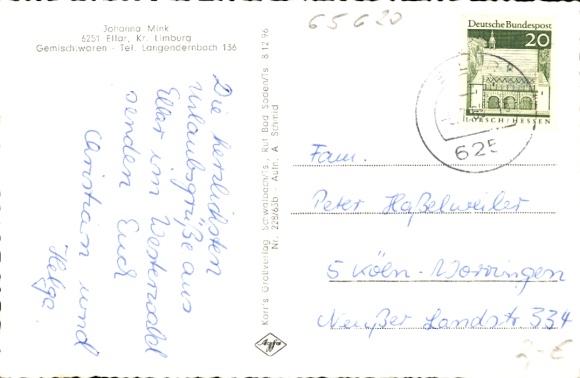 Johanna Mink
6251 Ellar, Kr. Limburg
Gemischtwaren - Tel. Langendernbach 136
Die herzlichsten
Urlaubsgrüße aus
Ellar im Westerwald
senden Euch
Christian und
Helga.
Korr's Großverlag, Schwalbach/Ts., Ruf Bad Soden/Ts. 8 12 96
Nr. 228/63b - Aufn. A. Schmid
Agfa
65620
Deutsche Bundespost
20
LORSCH/HESSEN
625
Fam.
Peter Haßelweiler
5 Köln-Worringen
Neußer Landstr. 334
2,-€